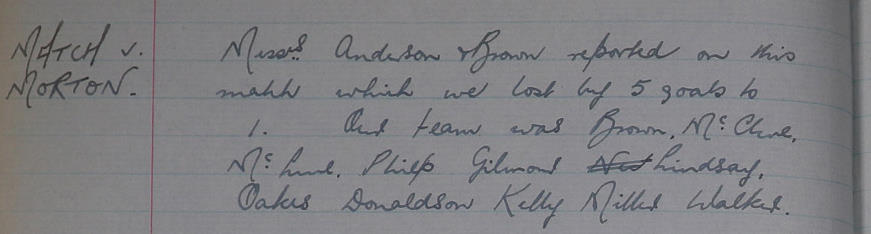 MATCH v. Messrs Anderson & Brown reported on this
MORTON. match which we lost by 5 goals to
1. Our team was Brown, McClure,
Philp Gilmour Lindsay,
Oakes Donaldson Kelly Miller Walker.